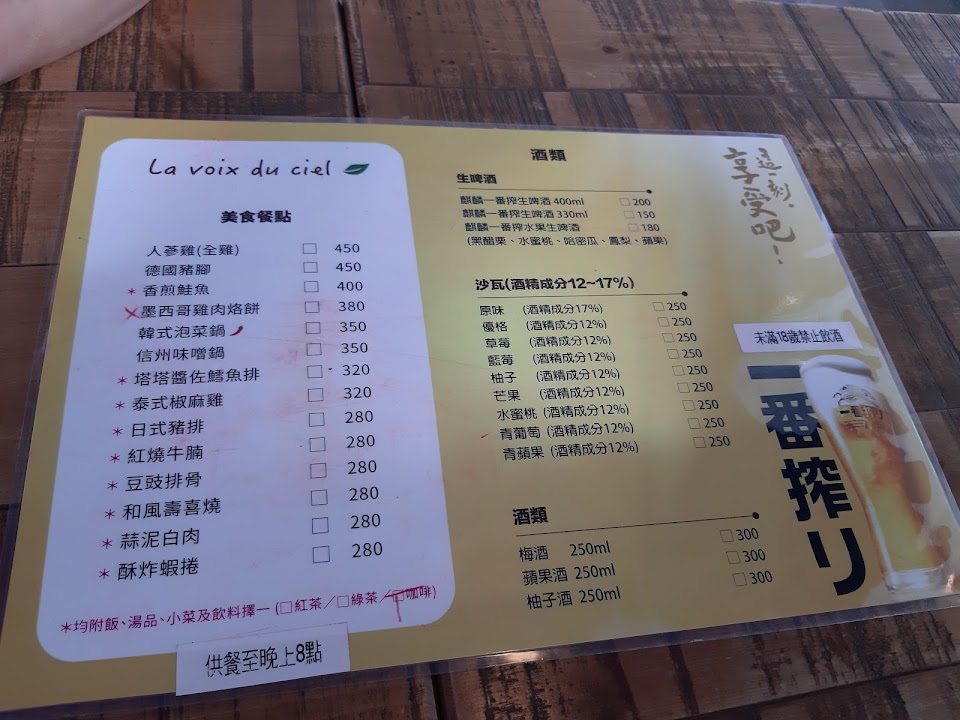 La voix du ciel
美食餐點
人蔘雞(全雞) □ 450
德國豬腳 □ 450
* 香煎鮭魚 □ 400
墨西哥雞肉烙餅 □ 380
韓式泡菜鍋 □ 350
信州味噌鍋 □ 350
* 塔塔醬佐鱈魚排 □ 320
* 泰式椒麻雞 □ 320
* 日式豬排 □ 280
* 紅燒牛腩 □ 280
* 豆豉排骨 □ 280
* 和風壽喜燒 □ 280
* 蒜泥白肉 □ 280
* 酥炸蝦捲 □ 280
*均附飯、湯品、小菜及飲料擇一 (□紅茶／□綠茶／□咖啡)
供餐至晚上8點
酒類
生啤酒
麒麟一番搾生啤酒 400ml □ 200
麒麟一番搾生啤酒 330ml □ 150
麒麟一番搾水果生啤酒 □ 180
(黑醋栗、水蜜桃、哈密瓜、鳳梨、蘋果)
沙瓦(酒精成分12~17%)
原味 (酒精成分17%) □ 250
優格 (酒精成分12%) □ 250
草莓 (酒精成分12%) □ 250
藍莓 (酒精成分12%) □ 250
柚子 (酒精成分12%) □ 250
芒果 (酒精成分12%) □ 250
水蜜桃 (酒精成分12%) □ 250
青葡萄 (酒精成分12%) □ 250
青蘋果 (酒精成分12%) □ 250
酒類
梅酒 250ml □ 300
蘋果酒 250ml □ 300
柚子酒 250ml □ 300
這一刻，
享受吧！
未滿18歲禁止飲酒
一番搾り